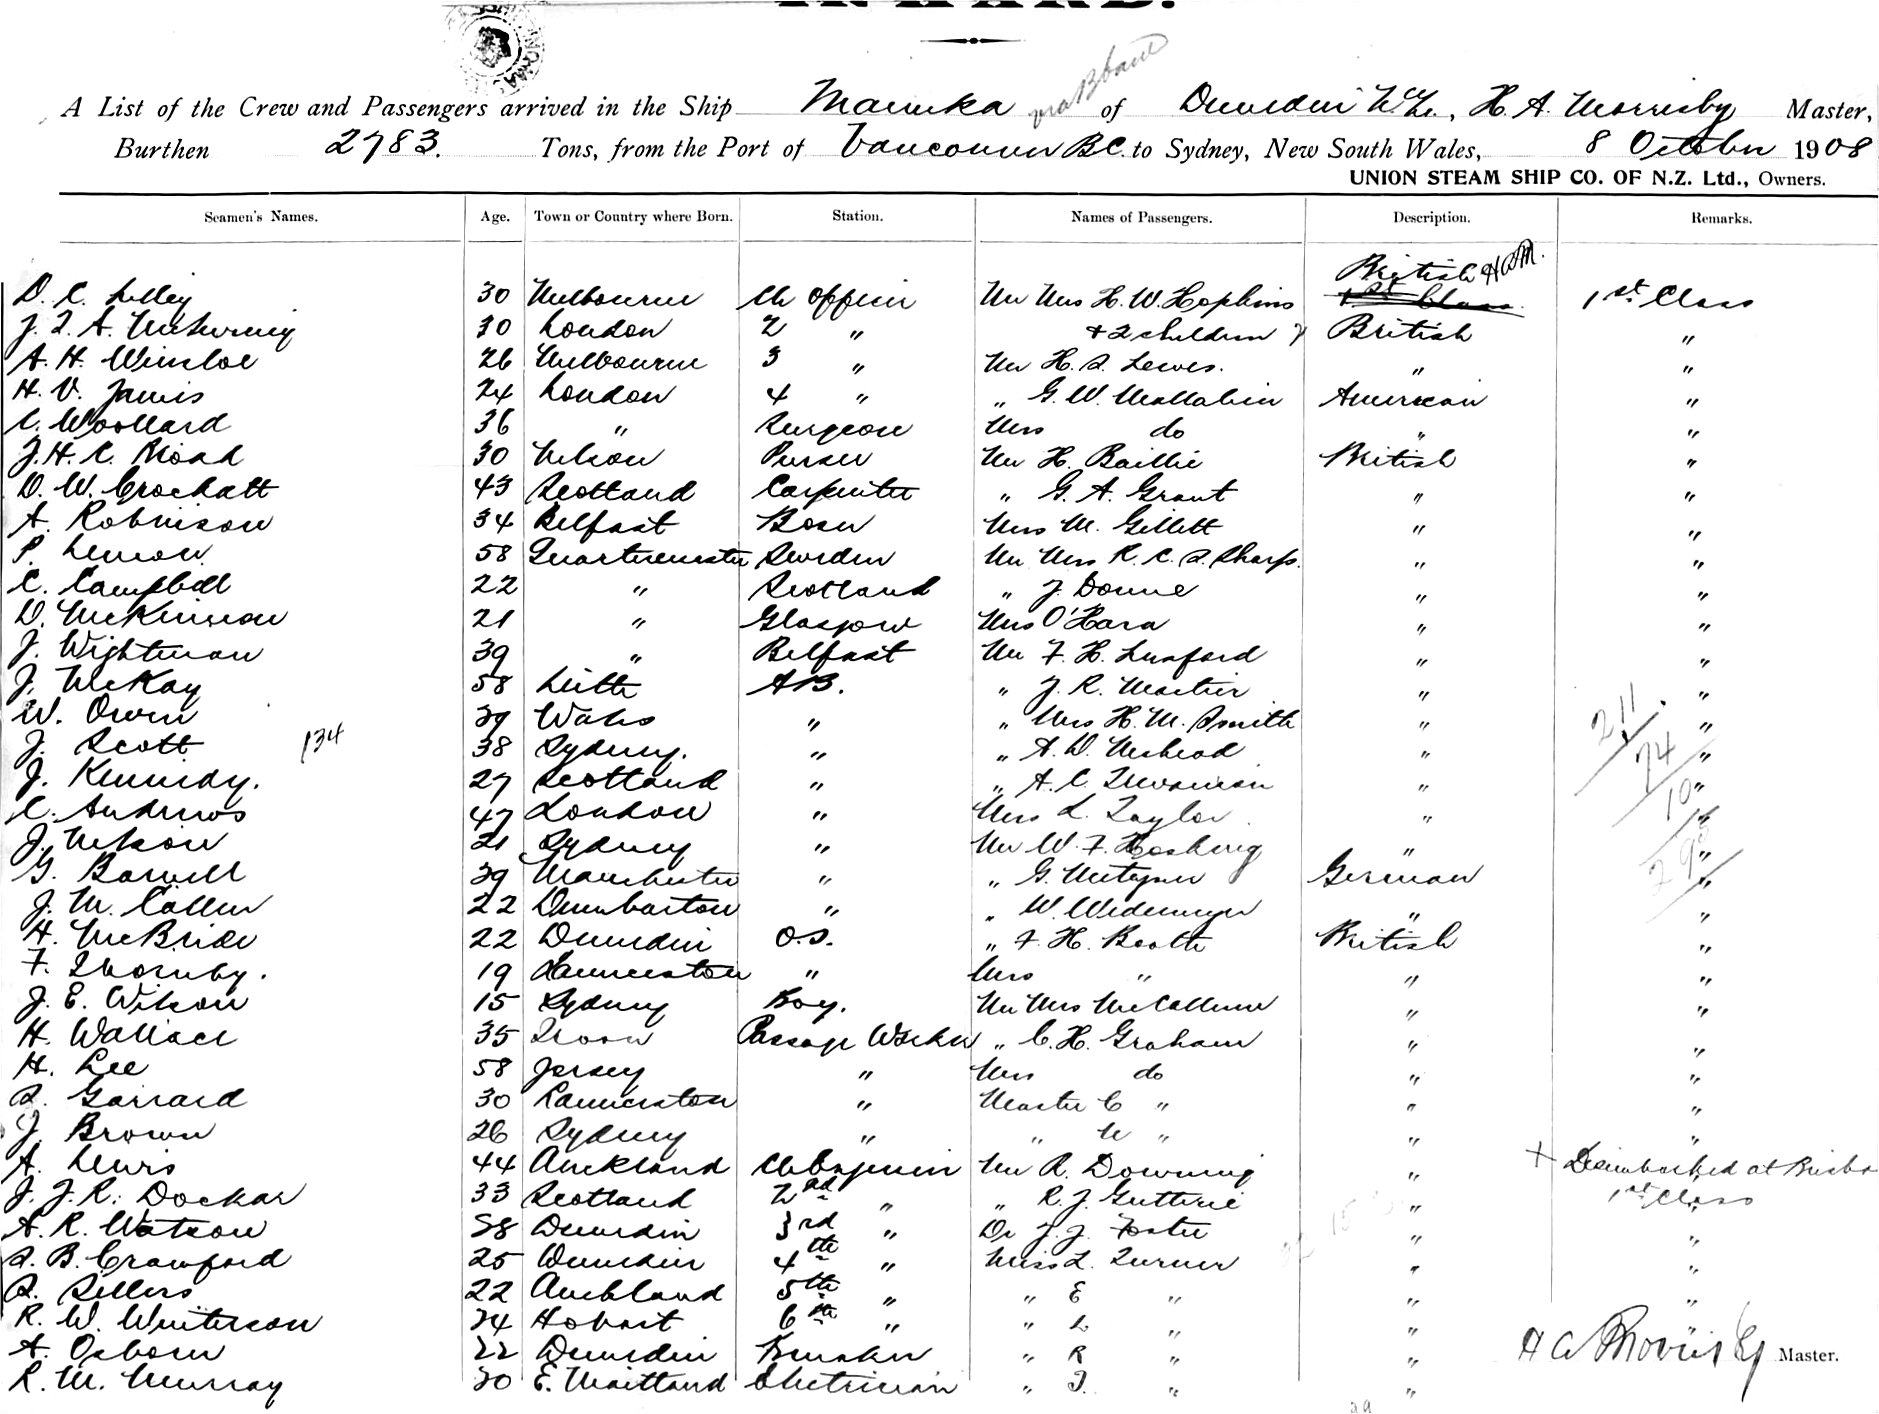 A List of the Crew and Passengers arrived in the Ship Manuka via Bbane of Dunedin N.Z., H. A. Morrisby Master,
Burthen 2783. Tons, from the Port of Vancouver BC. to Sydney, New South Wales, 8 October 1908
UNION STEAM SHIP CO. OF N.Z. Ltd., Owners.
Seamen's Names. Age. Town or Country where Born. Station. Names of Passengers. Description. Remarks.
British HAM.
D. C. Lilley 30 Melbourne Ch Officer Mr Mrs H. W. Hopkins 1st Class 1st Class
30 London 2 " + 2 children British "
A. H. Winsloe 26 Melbourne 3 " Mr H. S. Lewes. " "
H. V. James 24 London 4 " " G. W. American "
C. Woollard 36 " Surgeon Mrs do " "
J. H. C. 30 Nelson Purser Mr H. Baillie British "
D. W. Crockatt 43 Scotland Carpenter " G. A. Grant " "
A. Robinson 34 Belfast Bosn Mrs M. Gillett " "
P. Lennon 58 Quartermaster Sweden Mr Mrs R. C. S. Sharp. " "
C. Campbell 22 " Scotland " J. Donne " "
D. McKinnon 21 " Glasgow Mrs O'Hara " "
J. Wightman 39 " Belfast Mr F. H. Lunford " "
J. McKay 58 Leith AB. " J. R. Martin " "
W. Owen 39 Wales " " Mrs H. M. Smith " " 211
J. Scott 134 38 Sydney. " " A. W. " " 74
J. Kennedy. 27 Scotland " " A. C. " " 10
C. Andrews 47 London " Mrs L. Taylor " "
J. Nelson 21 Sydney " Mr W. F. Hosking " "
G. Barwell 39 Manchester " " G. German "
J. M. Callum 22 Dumbarton " " W. Widemeyer " "
H. McBride 22 Dunedin O.S. " F. H. Booth British "
F. Thornby. 19 Launceston " Mrs " " "
J. E. Wilson 15 Sydney Boy. Mr Mrs McCallum " "
H. Wallace 35 Troon Passage Worker " C. H. Graham " "
H. Lee 58 Jersey " Mrs do " "
S. Garrard 30 Launceston " Master C " " "
J. Brown 26 Sydney " " N " " "
A. Lewis 44 Auckland Ch Engineer Mr R. Downing " + Disembarked at Brisba
J. J. R. Dockar 33 Scotland 2nd " " R. J. Guthrie " 1st Class
A. R. Watson 28 Dunedin 3rd " Dr J. J. Foster " "
S. B. Crawford 25 Dunedin 4th " Miss L. Turner " "
S. Sellers 22 Auckland 5th " " E " " "
R. W. Winterson 24 Hobart 6th " " L " " "
A. Osborn 22 Dunedin " R " " H A Morrisby Master.
R. M. Murray 30 E. Maitland Electrician " I. " "